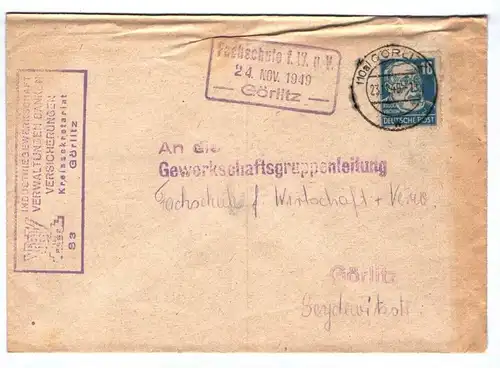 Fachschule f. W. u. V.
24. NOV. 1949
Görlitz
(10a) GÖRLITZ
23.
16
DEUTSCHE POST
INDUSTRIEGEWERKSCHAFT
VERWALTUNGEN BANKEN
VERSICHERUNGEN
Kreissekretariat
Görlitz
S3
An die
Gewerkschaftsgruppenleitung
Fachschule f. Wirtschaft + Verw.
Görlitz